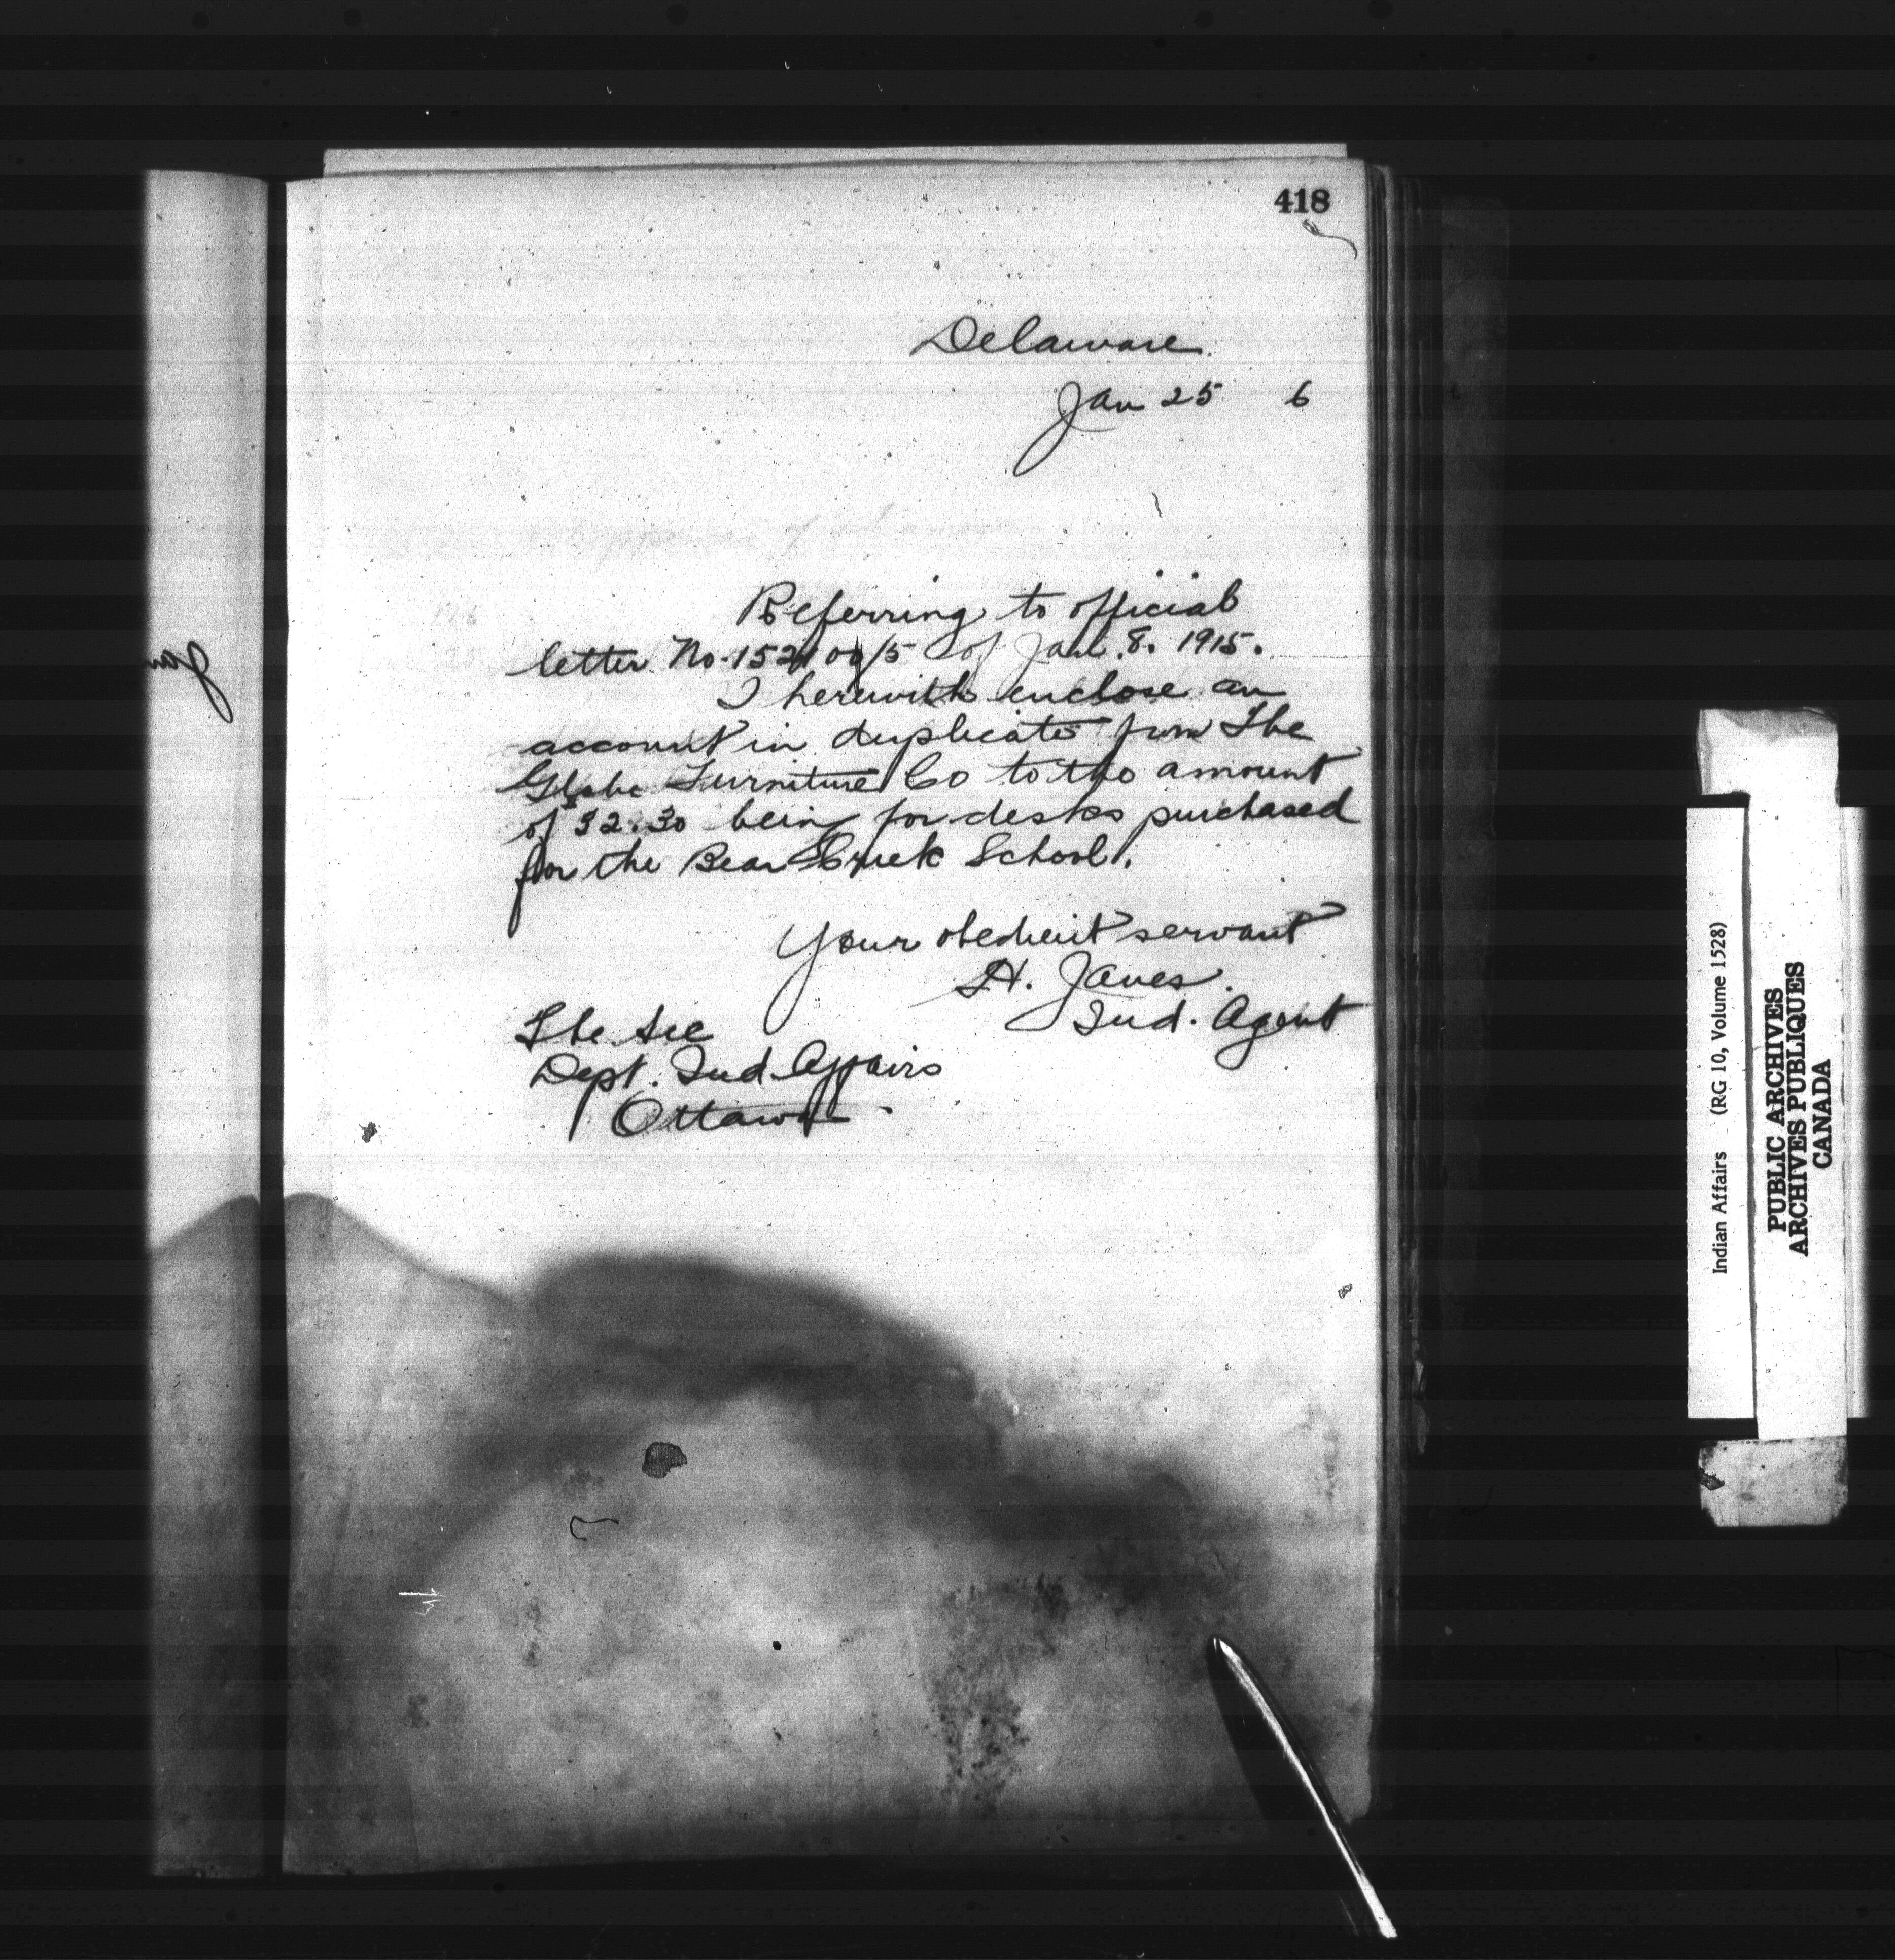 418
Delaware
Jan 25 6
Referring to official
letter No. of Jan. 8. 1915.
I herewith enclose an
account in duplicate from The
Globe Furniture Co to the amount
of 32.30 being for desks purchased
for the Bear Creek School.
Your obedient servant
H. Janes.
Ind. Agent
The Sec
Dept. Ind. Affairs
Ottawa
Indian Affairs (RG 10, Volume 1528)
PUBLIC ARCHIVES
ARCHIVES PUBLIQUES
CANADA